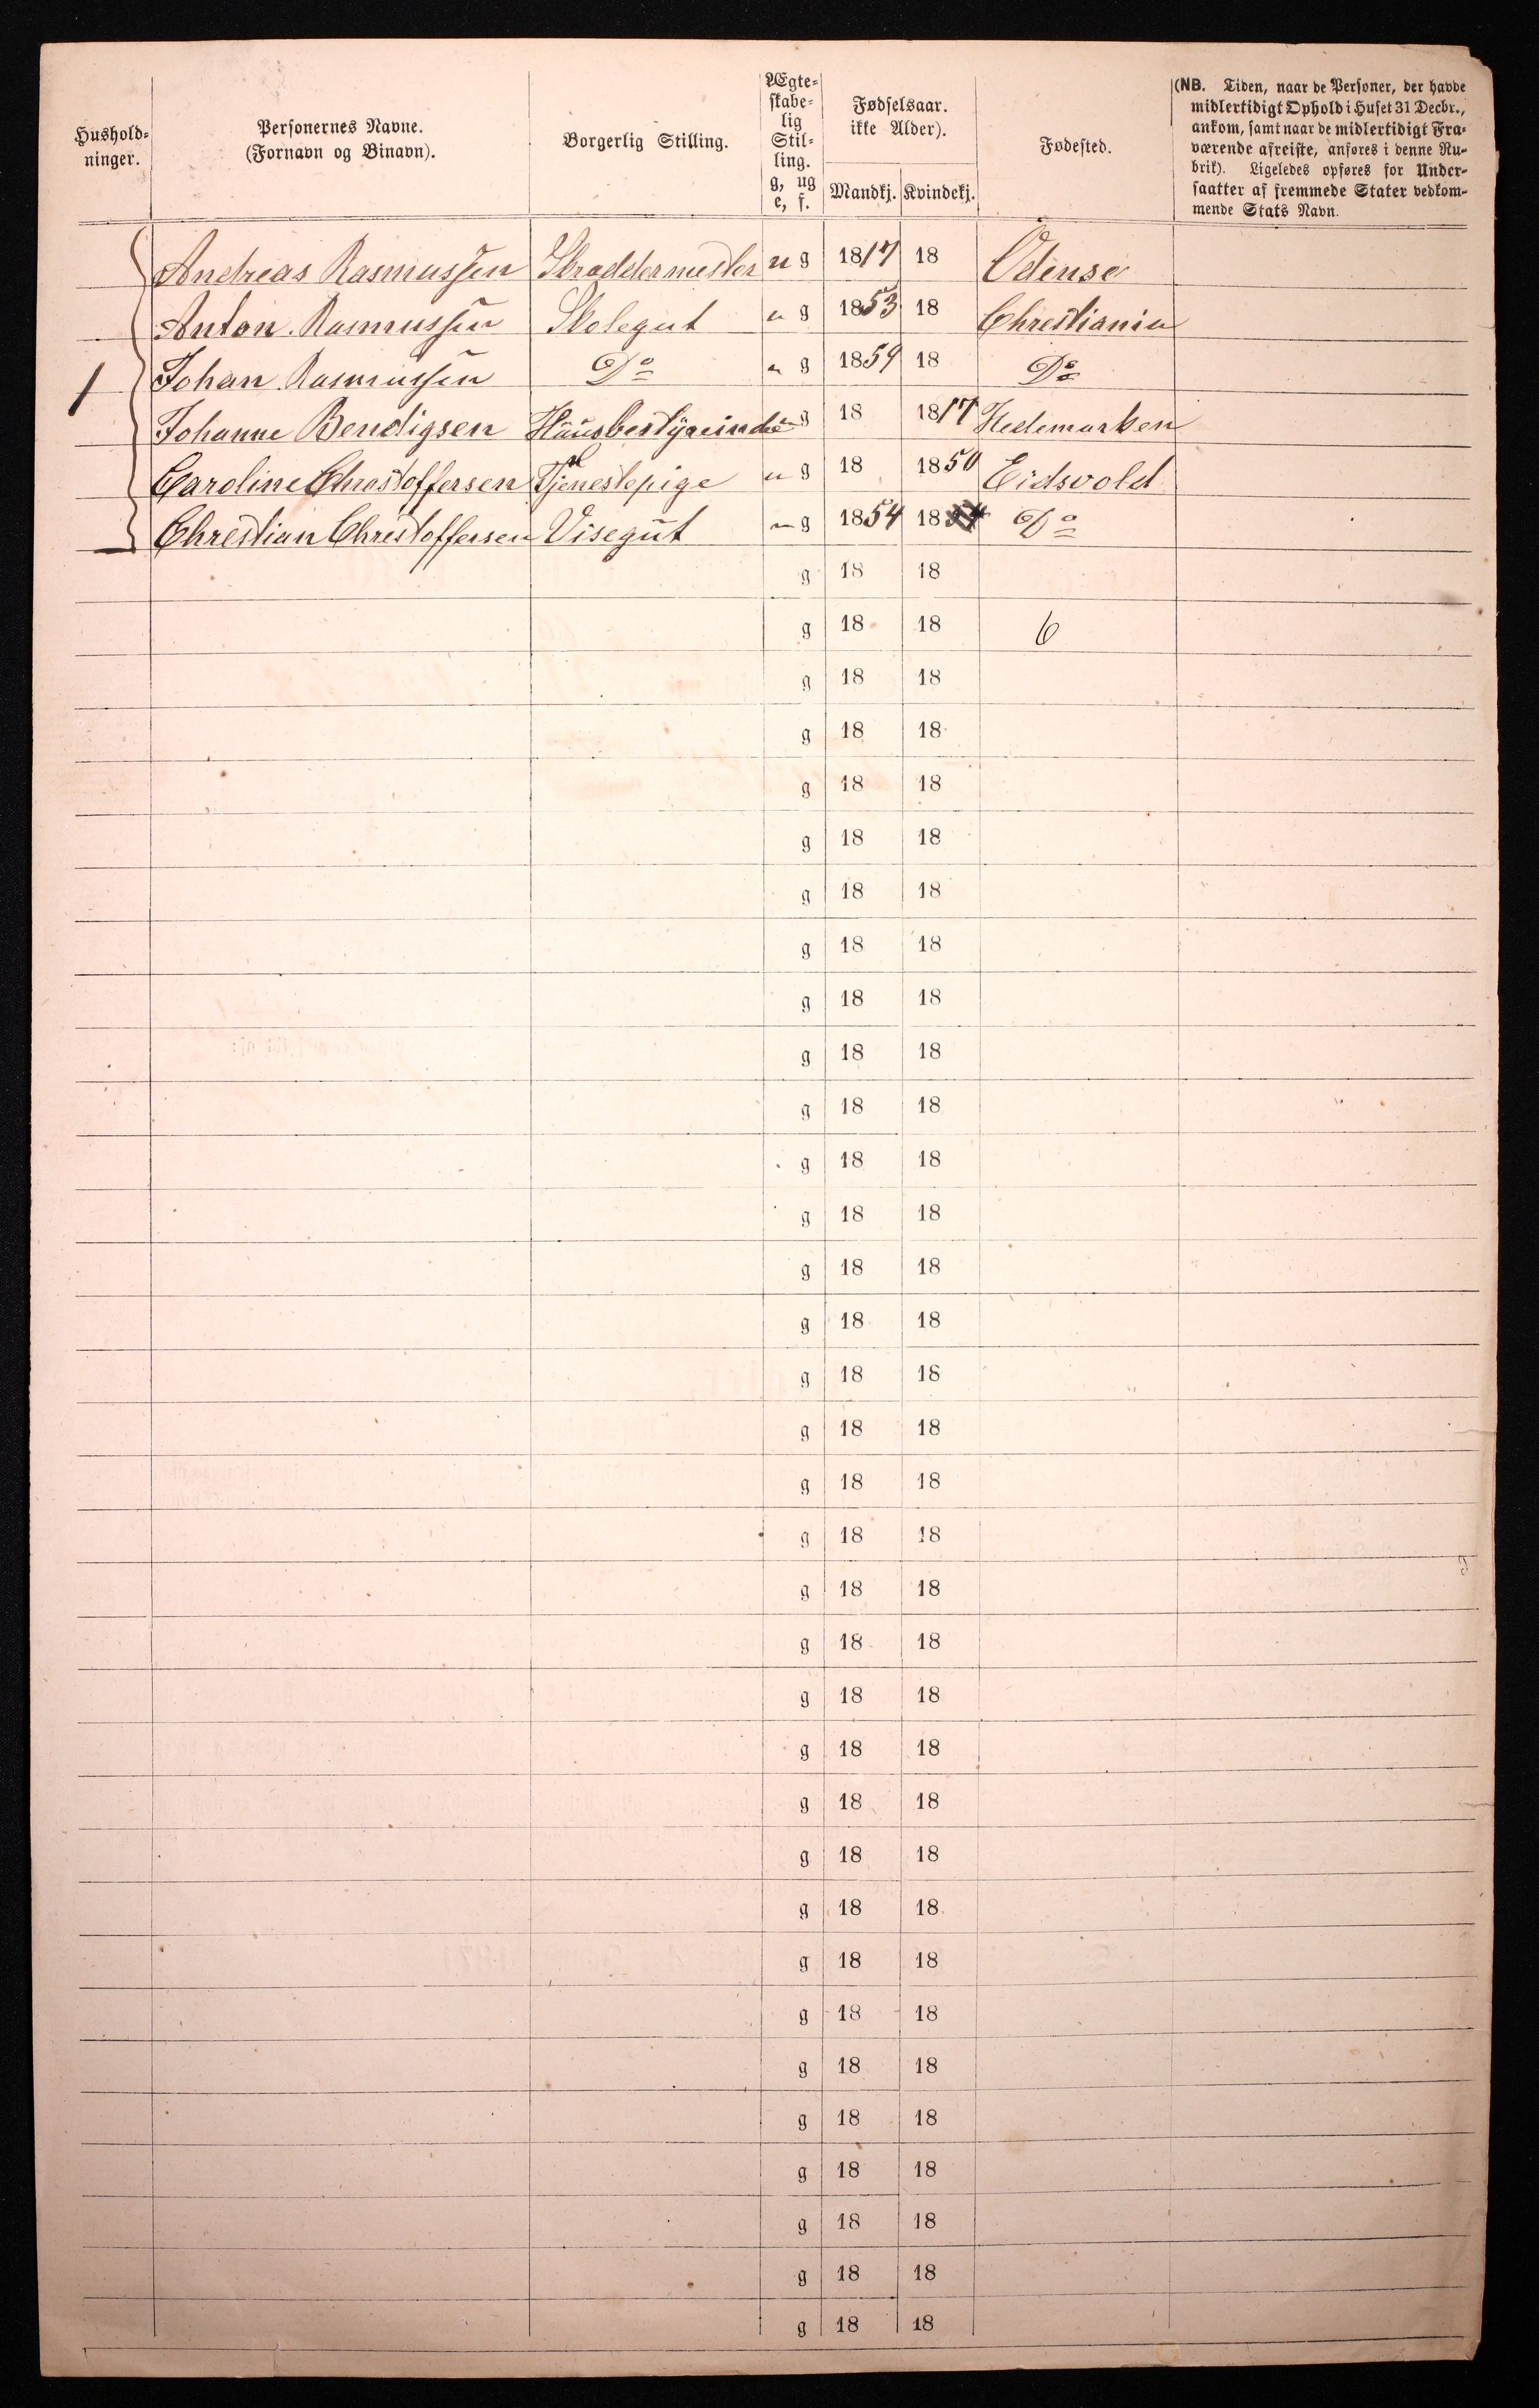 Hushold-
ninger.
Personernes Navne.
(Fornavn og Binavn).
Borgerlig Stilling.
Ægte-
skabe-
lig
Stil-
ling.
g, ug
e, f.
Fødselsaar.
ikke Alder).
Mandkj. Kvindekj.
Fødested.
(NB. Tiden, naar de Personer, der havde
midlertidigt Ophold i Huset 31 Decbr.,
ankom, samt naar de midlertidigt Fra-
værende afreiste, anføres i denne Ru-
brik). Ligeledes opføres for Under-
saatter af fremmede Stater vedkom-
mende Stats Navn.
Andreas Rasmussen Skraddermester u g 1817 18 Odense
Anton Rasmussen Skolegut u g 1853 18 Christiania
1 Johan Rasmussen Do u g 1859 18 Do
Johanne Bendigsen Huusbestyreinde u g 18 1817 Hedemarken
Caroline Christoffersen Tjenestepige u g 18 1850 Eidsvold
Christian Christoffersen Visegut u g 1854 18 Do
g 18 18
g 18 18 6
g 18 18
g 18 18
g 18 18
g 18 18
g 18 18
g 18 18
g 18 18
g 18 18
g 18 18
g 18 18
g 18 18
g 18 18
g 18 18
g 18 18
g 18 18
g 18 18
g 18 18
g 18 18
g 18 18
g 18 18
g 18 18
g 18 18
g 18 18
g 18 18
g 18 18
g 18 18
g 18 18
g 18 18
g 18 18
g 18 18
g 18 18
g 18 18